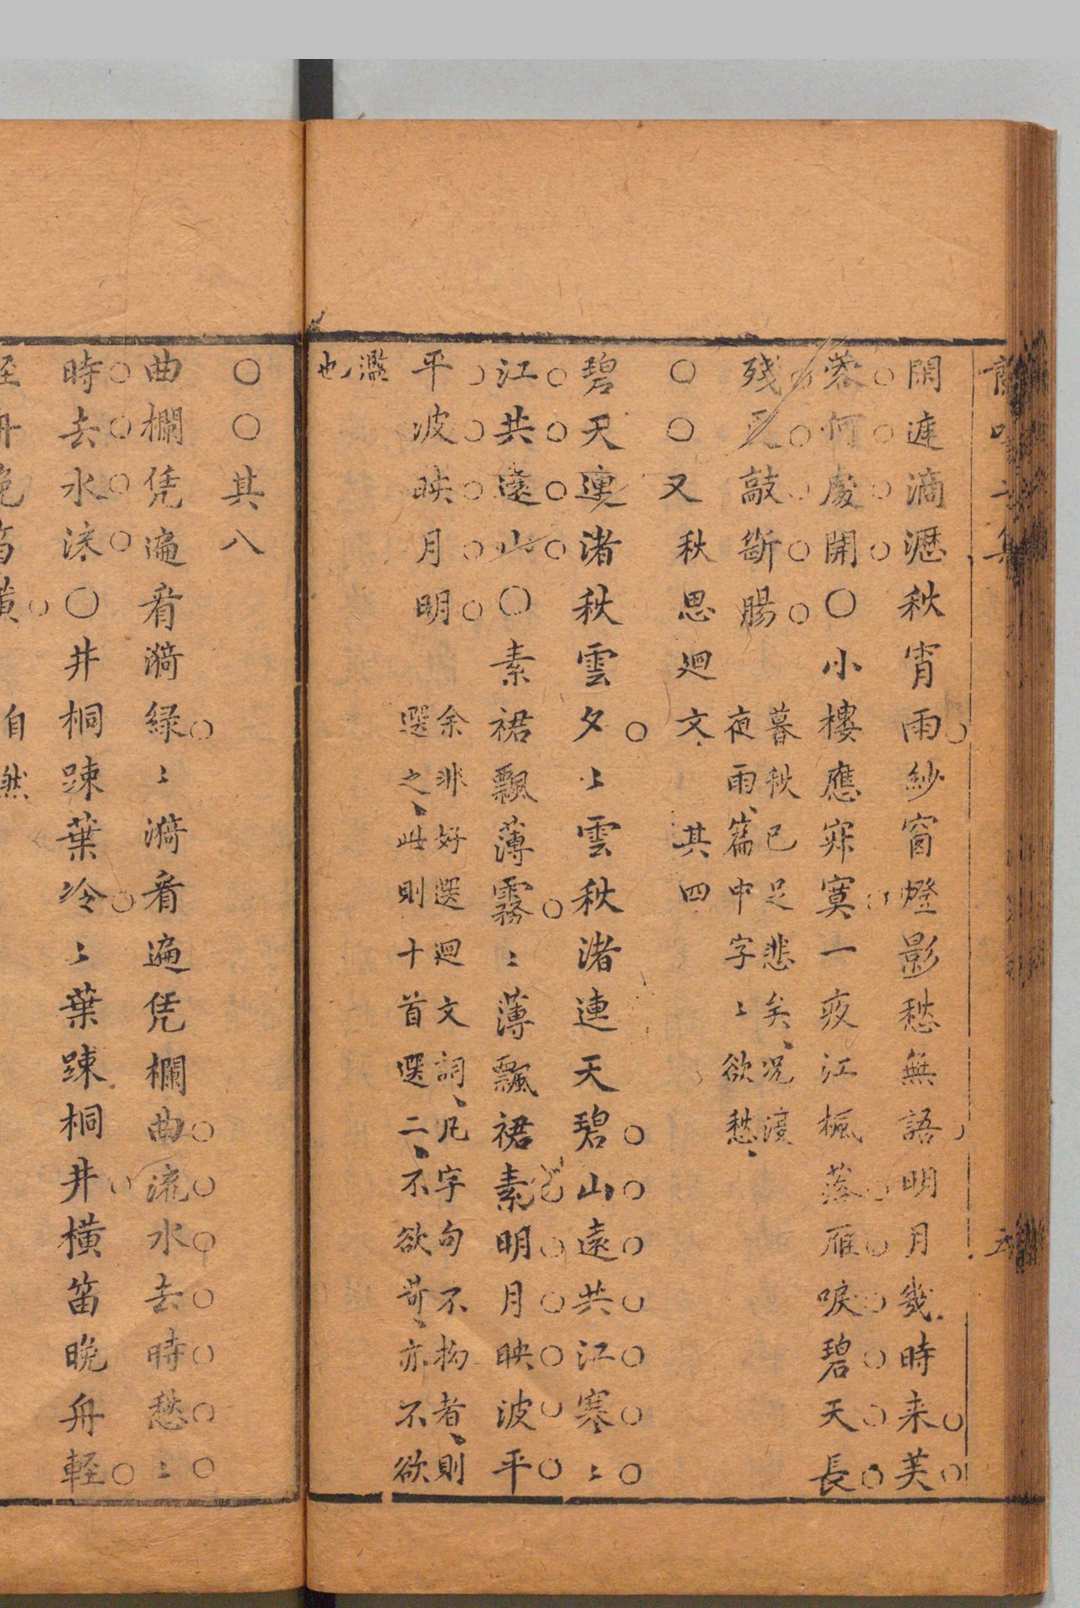 閒連滴瀝秋宵雨紗窗燈影愁無語明月幾時来芙
蓉何處開〇小樓應寂寞一夜江楓落雁唳碧天長
殘更敲斷腸
暮秋已足悲矣、况濱
夜雨、篇中字〻欲愁、
〇〇又秋思廻文 其四
碧天連渚秋雲夕〻雲秋渚連天碧山遠共江寒〻
江共遠山〇素裙飄薄霧〻薄飄裙素明月映波平
平波映月明
余非好選廻文詞、凡字句不拘者、則
選之、此則十首選二、不欲苛、亦不欲
濫
也
〇〇其八
曲欄凭遍看漪緑〻漪看遍凭欄曲流水去時愁〻
時去水流〇井桐踈葉冷〻葉踈桐井橫笛晩舟輕
輕舟晩笛橫
自然